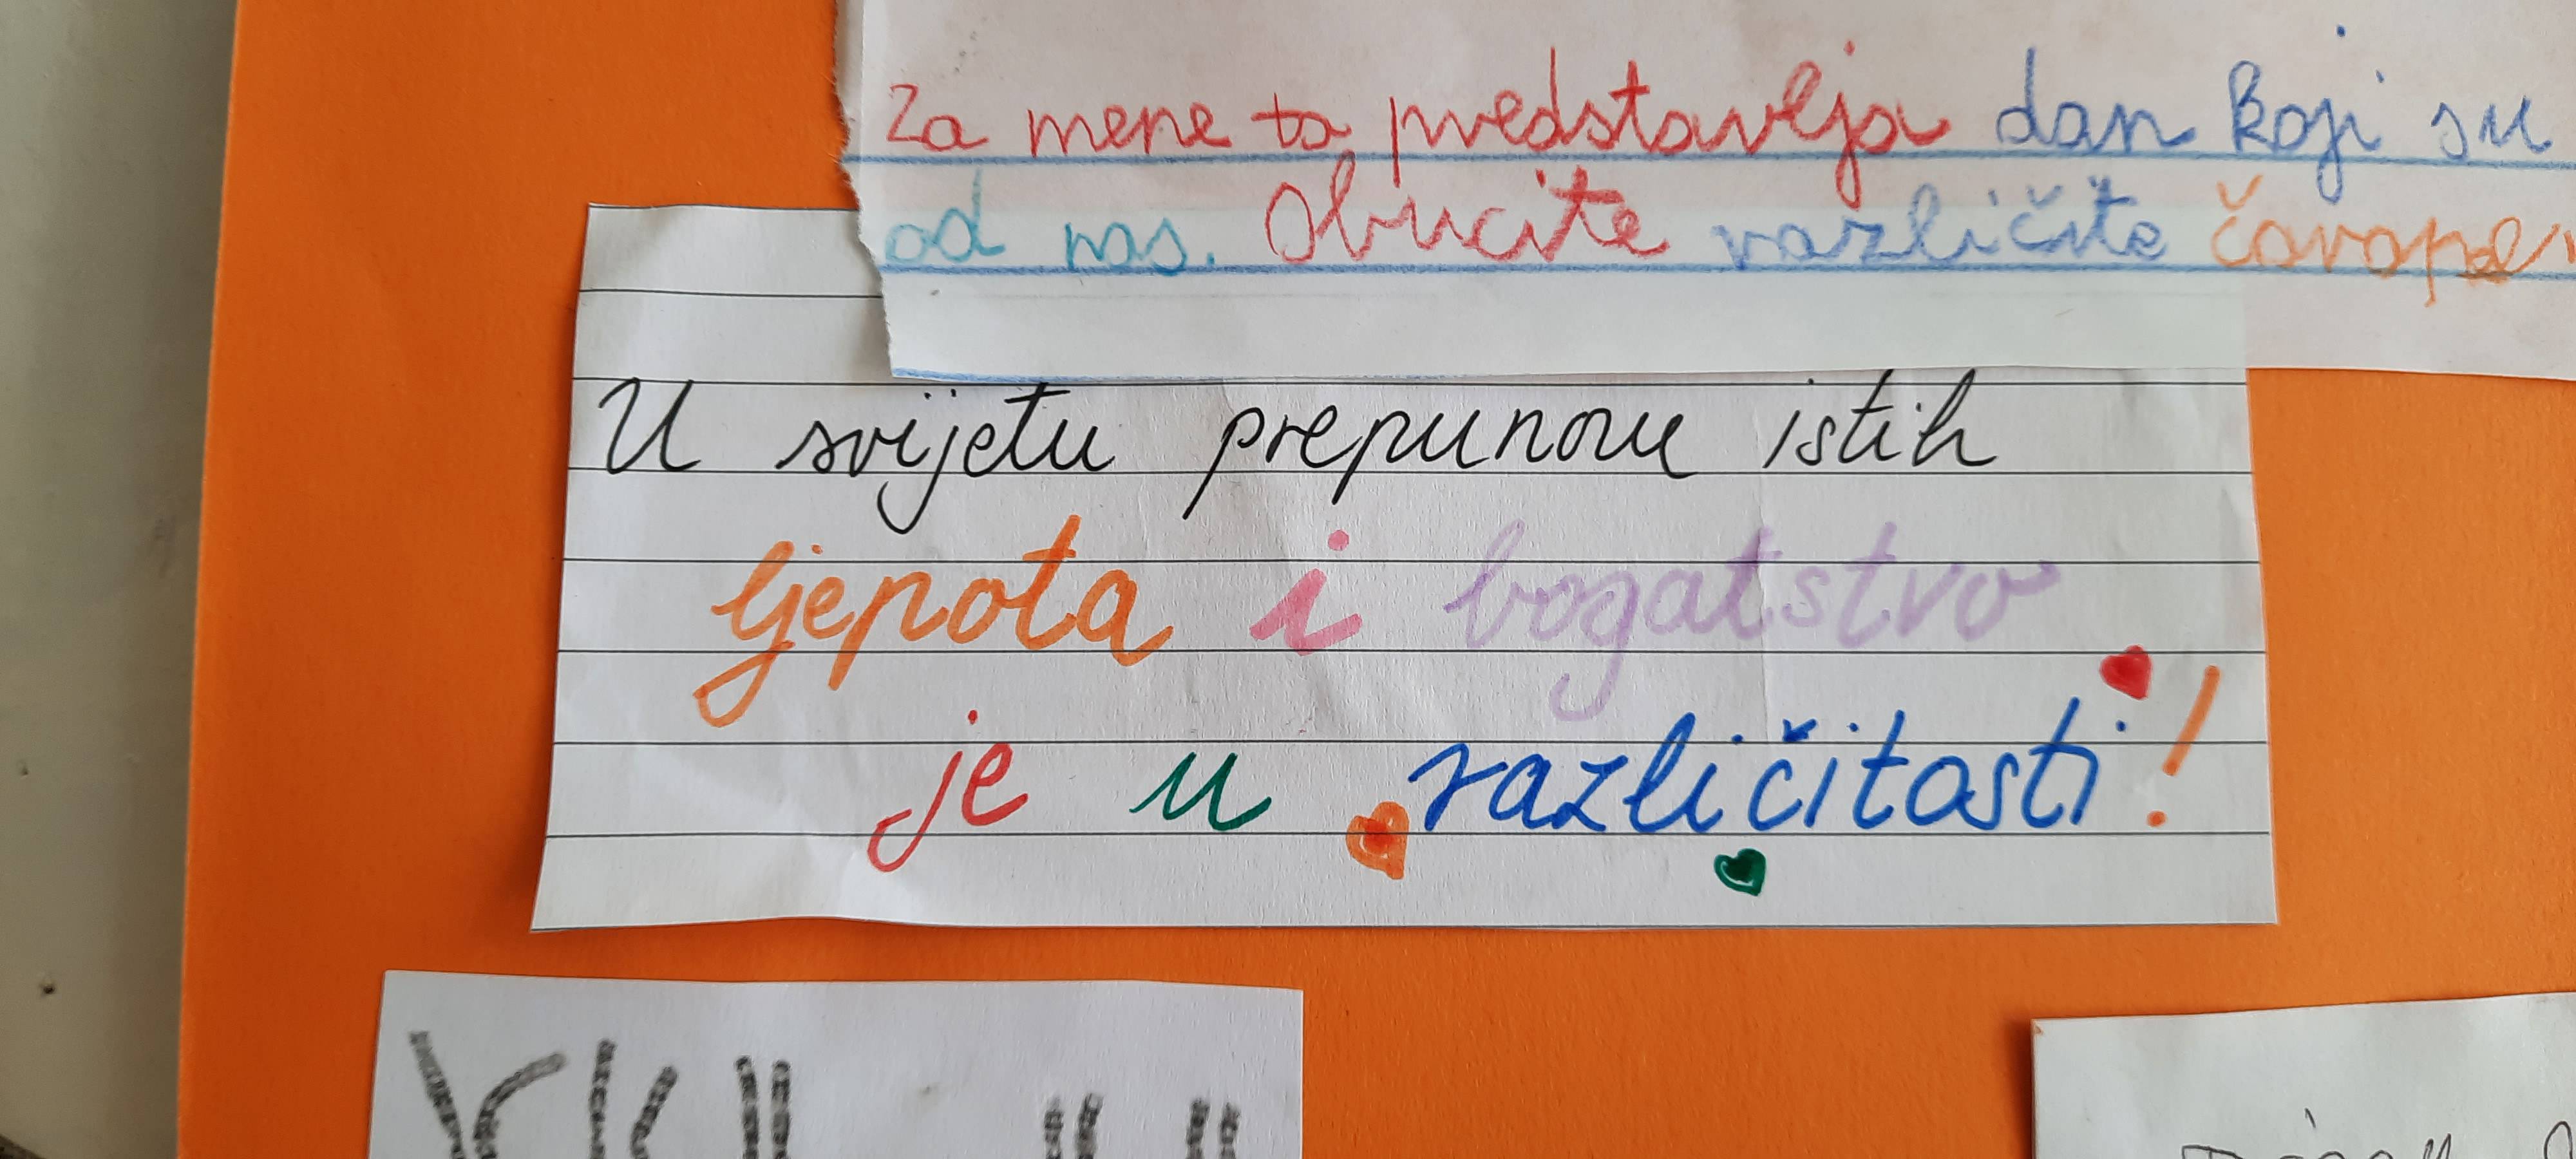 Za mene to predstavlja dan koji su
od nas. Obucite različite čarape
U svijetu prepunom istih
ljepota i bogatstvo
je u različitosti!